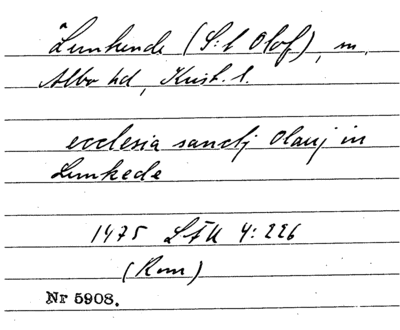 Lunkende (S:t Olof), sn.
Albo hd, Krist. l.
ecclesia sanctj Olauj in
Lunkede
1475 LÄU 4:226
(Rom)
Nr 5908.